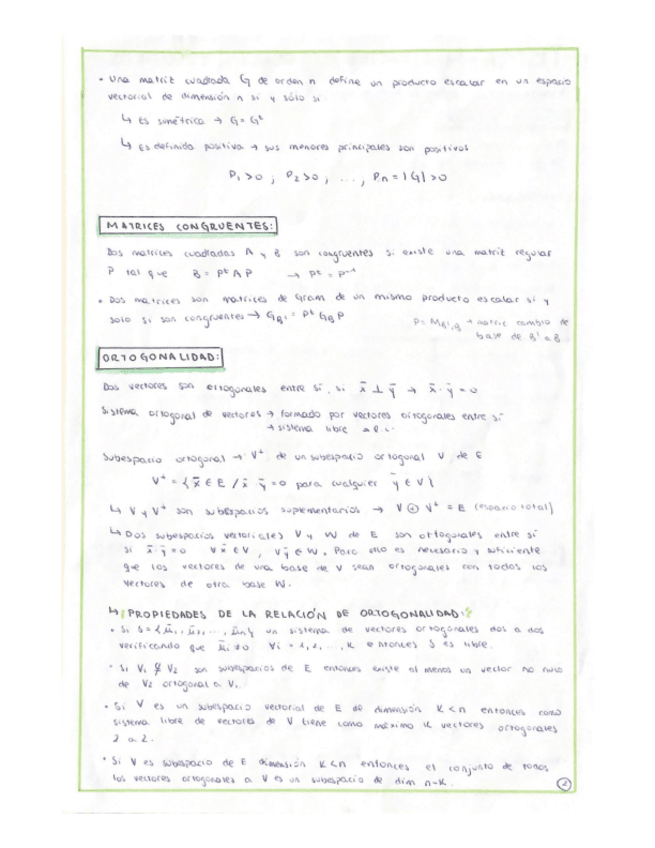 • Una matriz cuadrada G de orden n define un producto escalar en un espacio
vectorial de dimensión n si y sólo si
↳ Es simétrica → G = Gᵗ
↳ Es definida positiva → sus menores principales son positivos
P₁ > 0 ; P₂ > 0 ; ... , Pₙ = |G| > 0
MATRICES CONGRUENTES:
Dos matrices cuadradas A y B son congruentes si existe una matriz regular
P tal que B = Pᵗ A P → Pᵗ = P⁻¹
• Dos matrices son matrices de Gram de un mismo producto escalar si y
solo si son congruentes → G_B' = Pᵗ G_B P
P = M_B',B → matriz cambio de
base de B' a B
ORTOGONALIDAD:
Dos vectores son ortogonales entre sí, si x̄ ⊥ ȳ → x̄ · ȳ = 0
Sistema ortogonal de vectores → formado por vectores ortogonales entre sí
→ sistema libre
Subespacio ortogonal → V⊥ de un subespacio ortogonal V de E
V⊥ = { x̄ ∈ E / x̄ · ȳ = 0 para cualquier ȳ ∈ V }
↳ V y V⊥ son subespacios suplementarios → V ⊕ V⊥ = E (espacio total)
↳ Dos subespacios vectoriales V y W de E son ortogonales entre sí
si x̄ · ȳ = 0 ∀x̄ ∈ V, ∀ȳ ∈ W. Para ello es necesario y suficiente
que los vectores de una base de V sean ortogonales con todos los
vectores de otra base W.
↳ ¡PROPIEDADES DE LA RELACIÓN DE ORTOGONALIDAD:!
• Si S = { ū₁, ū₂, ..., ūₙ } un sistema de vectores ortogonales dos a dos
verificando que ūᵢ ≠ 0 ∀i = 1, 2, ..., k entonces S es libre.
• Si V₁ ⊄ V₂ son subespacios de E entonces existe al menos un vector no nulo
de V₂ ortogonal a V₁.
• Si V es un subespacio vectorial de E de dimensión K < n entonces como
sistema libre de vectores de V tiene como máximo K vectores ortogonales
2 a 2.
• Si V es subespacio de E dimensión K < n entonces el conjunto de todos
los vectores ortogonales a V es un subespacio de dim n-K.
2